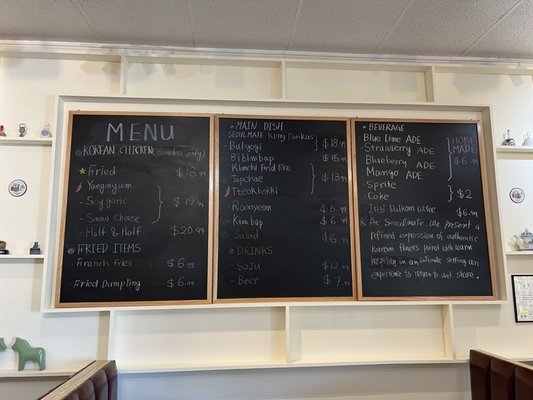 MENU
KOREAN CHICKEN (Boneless only)
Fried $18.99
Yangnyum
Soy garlic $19.99
Snow cheese
Half & Half $20.99
FRIED ITEMS
French fries $6.99
Fried Dumpling $6.99
MAIN DISH
SEOULMATE King Donkas
Bulgogi $18.99
Bibimbap $15.99
Kimchi Fried Rice
Japchae $13.99
Tteokbokki
Ramyeon $5.99
Kimbap $6.99
Salad $6.99
DRINKS
Soju $12.99
Beer $7.99
BEVERAGE
Blue Lime ADE HOME
Strawberry ADE MADE
Blueberry ADE $6.99
Mango ADE
Sprite
Coke $2
Iced Dalkom Coffee $6.99
At Seoulmate, we present a
refined expression of authentic
korean flavors, paired with warm
hospitality in an intimate setting an
experience to return to and share.